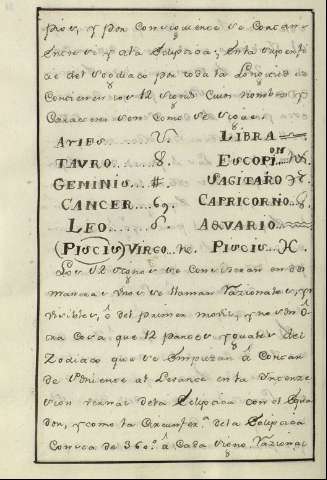 pios, y por Conseguiense se Contar
de esta Eclipsica; en la superfi
cie del Soodiaco por toda la Longitud se
Contienen los 12 signos Cuios nombres y
Caracteres son Como se sigue.
ARIES ..... ♈. LIBRA ♎.
TAURO ..... ♉. ESCOPION ♏.
GEMINIS ... #. SAGITARO ♐.
CANCER .... 69. CAPRICORNO ♑.
LEO ...... ♌. AQUARIO ♒.
(PISCIS) VIRGO .. ♍. PISCIS ... ♓.
Los 12 signos se Consideran en dos
maneras unos se llaman Razionales, y
visibles, ô del primer mobil, y no son ô
tra Cosa, que 12 partes yguales del
Zodiaco que se Empiezan â Contar
de Poniense al Levante en la Yntersec
sion vernal dela Eclipsica con el Equa
dor, y como la Circunfer.ª dela Eclipsica
Consta de 360.º â Cada signo Razional